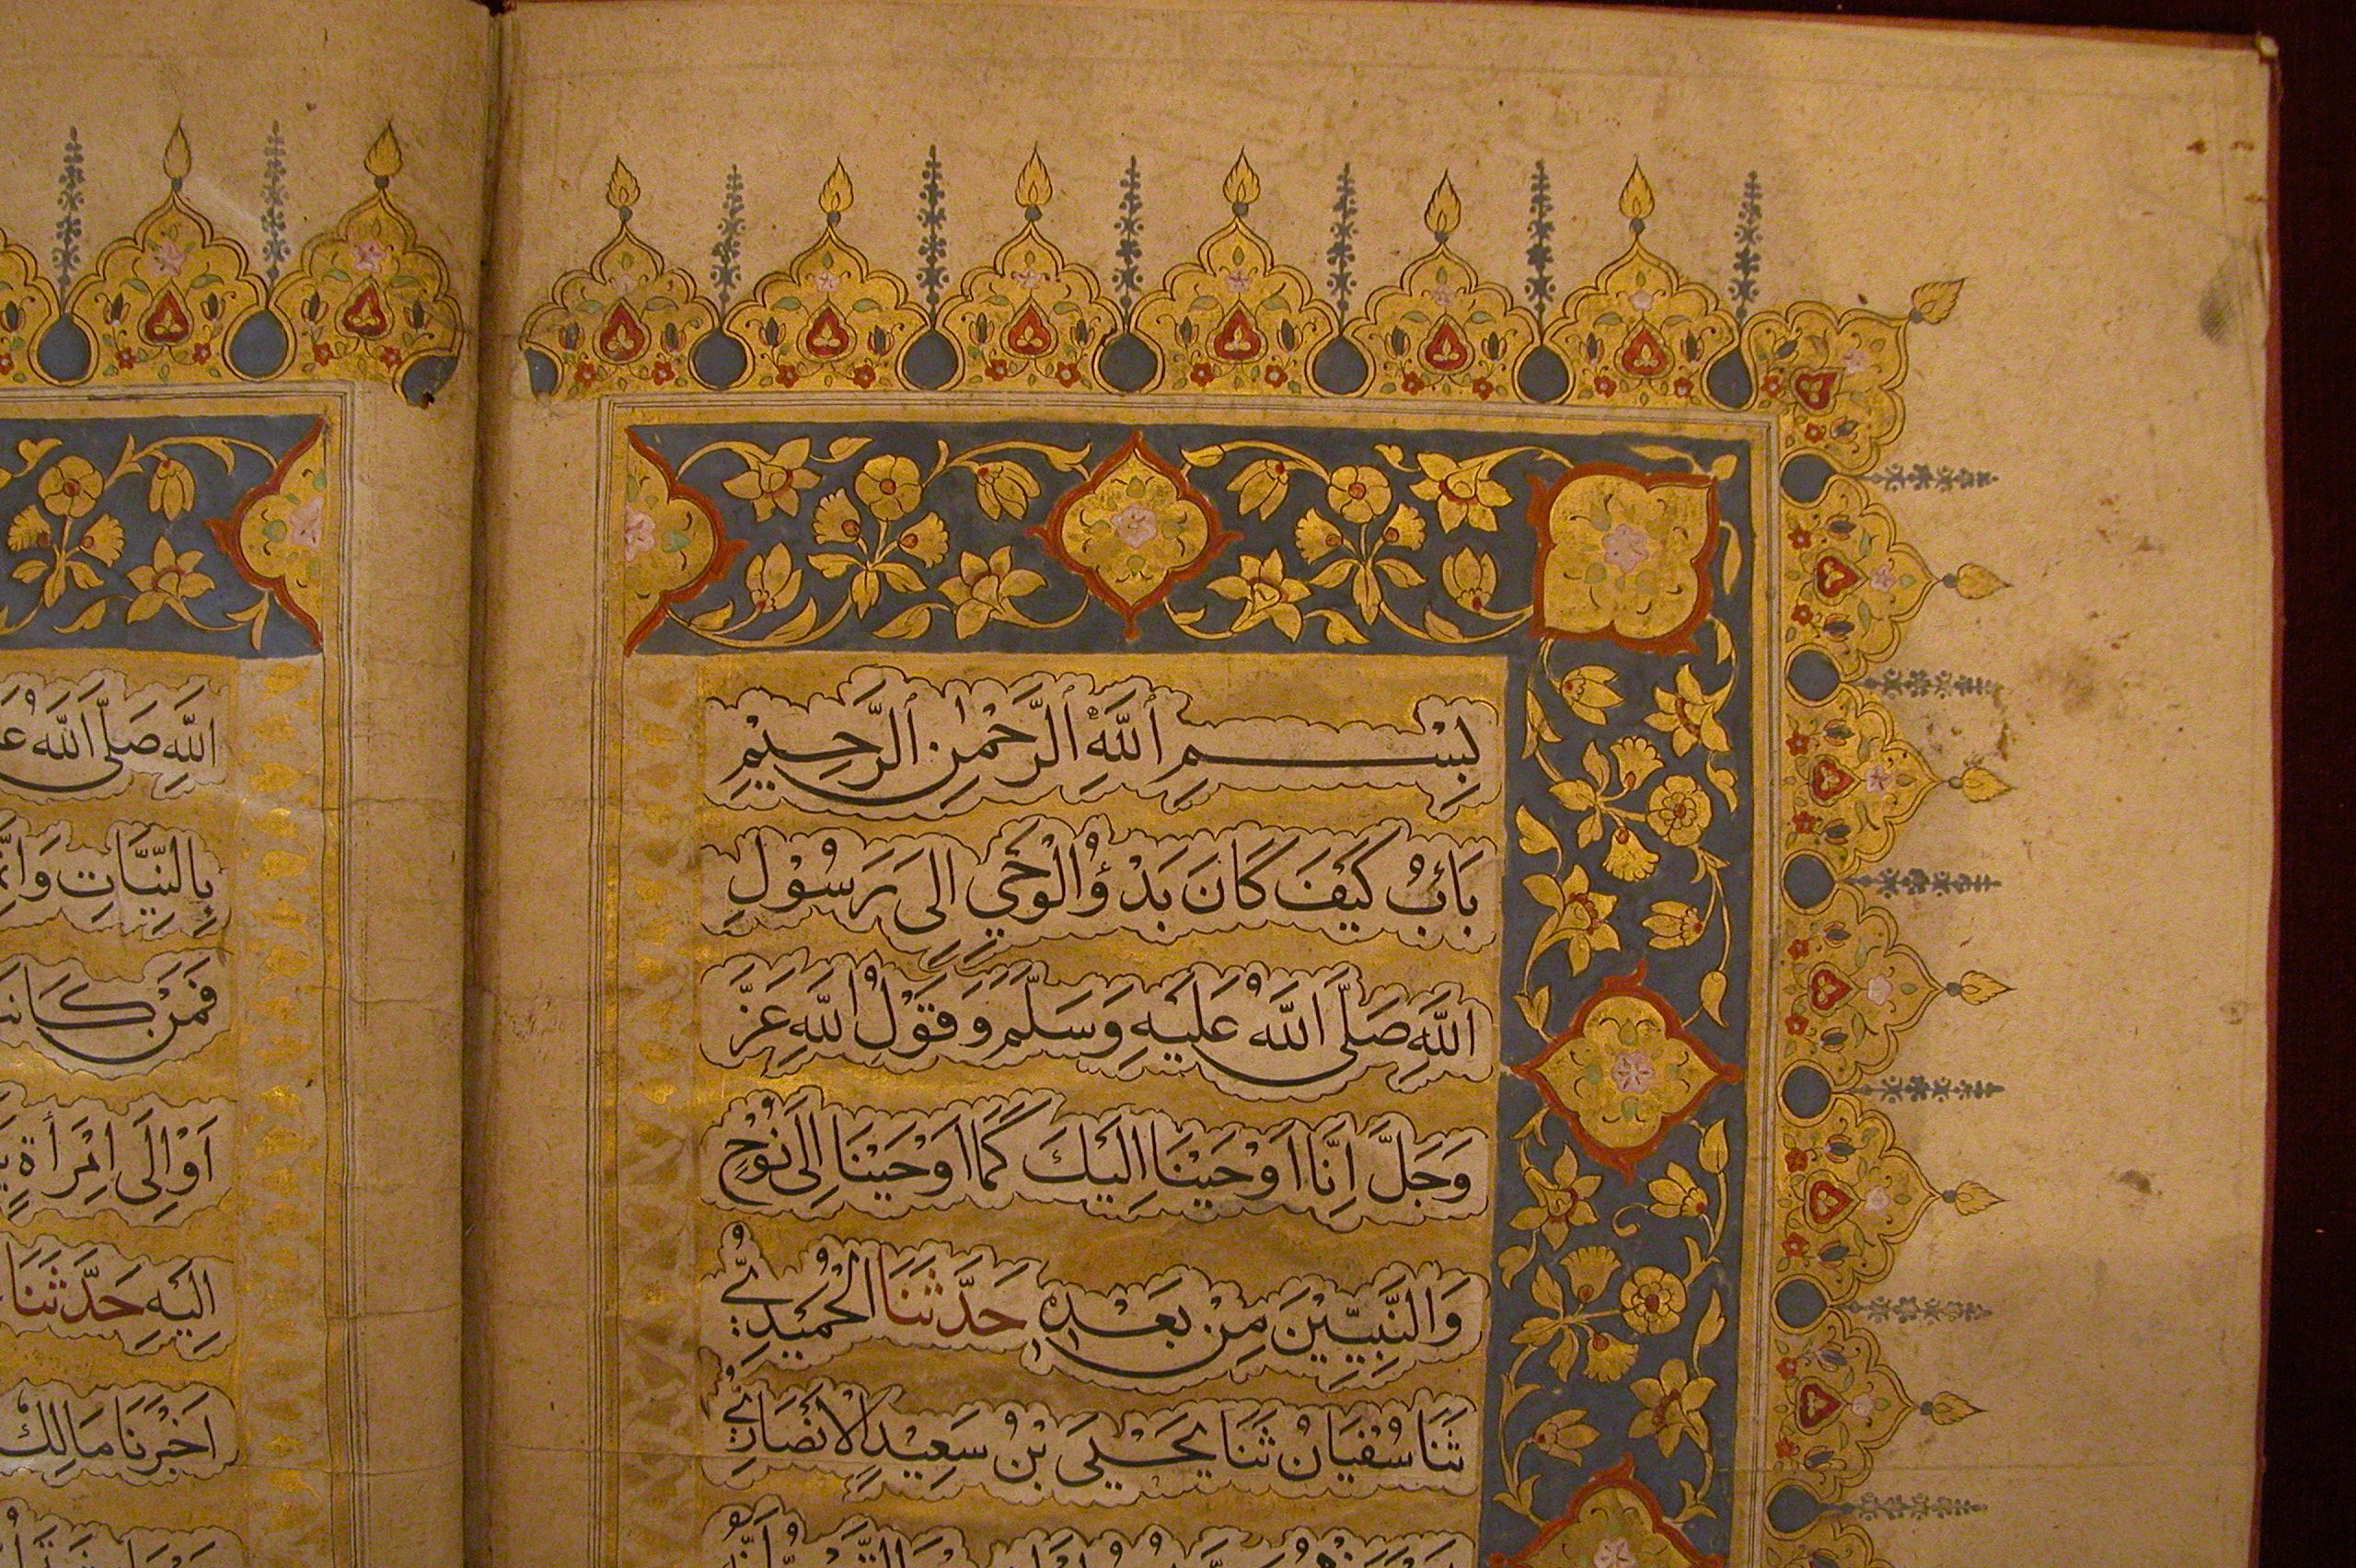 بِسْمِ ٱللَّهِ ٱلرَّحْمٰنِ ٱلرَّحِيْمِ
بَابُ كَيْفَ كَانَ بَدْؤُ الْوَحْيِ اِلىَ رَسُوْلِ
اللهِ صَلَّى اللهُ عَلَيْهِ وَسَلَّمَ وَ قَوْلُ اللهِ عَزَّ
وَجَلَّ اِنَّا اَوْحَيْنَا اِلَيْكَ كَمَا اَوْحَيْنَا اِلَى نُوْحٍ
وَالنَّبِيّيْنَ مِنْ بَعْدِهِ حَدَّثَنَا الحُمَيْدِيُّ
ثَنَا سُفْيَانُ ثَنَا يَحْيىَ بْنُ سَعِيْدٍ الْاَنْصَارِيُّ
اللهِ صَلَّى اللهُ
بِالنِّيَّاتِ
فَمَنْ كَانَت
اَوْ اِلَى امْرَأَةٍ
اِلَيْهِ حَدَّثَنَا
اَخْبَرَنَا مَالِكٌ